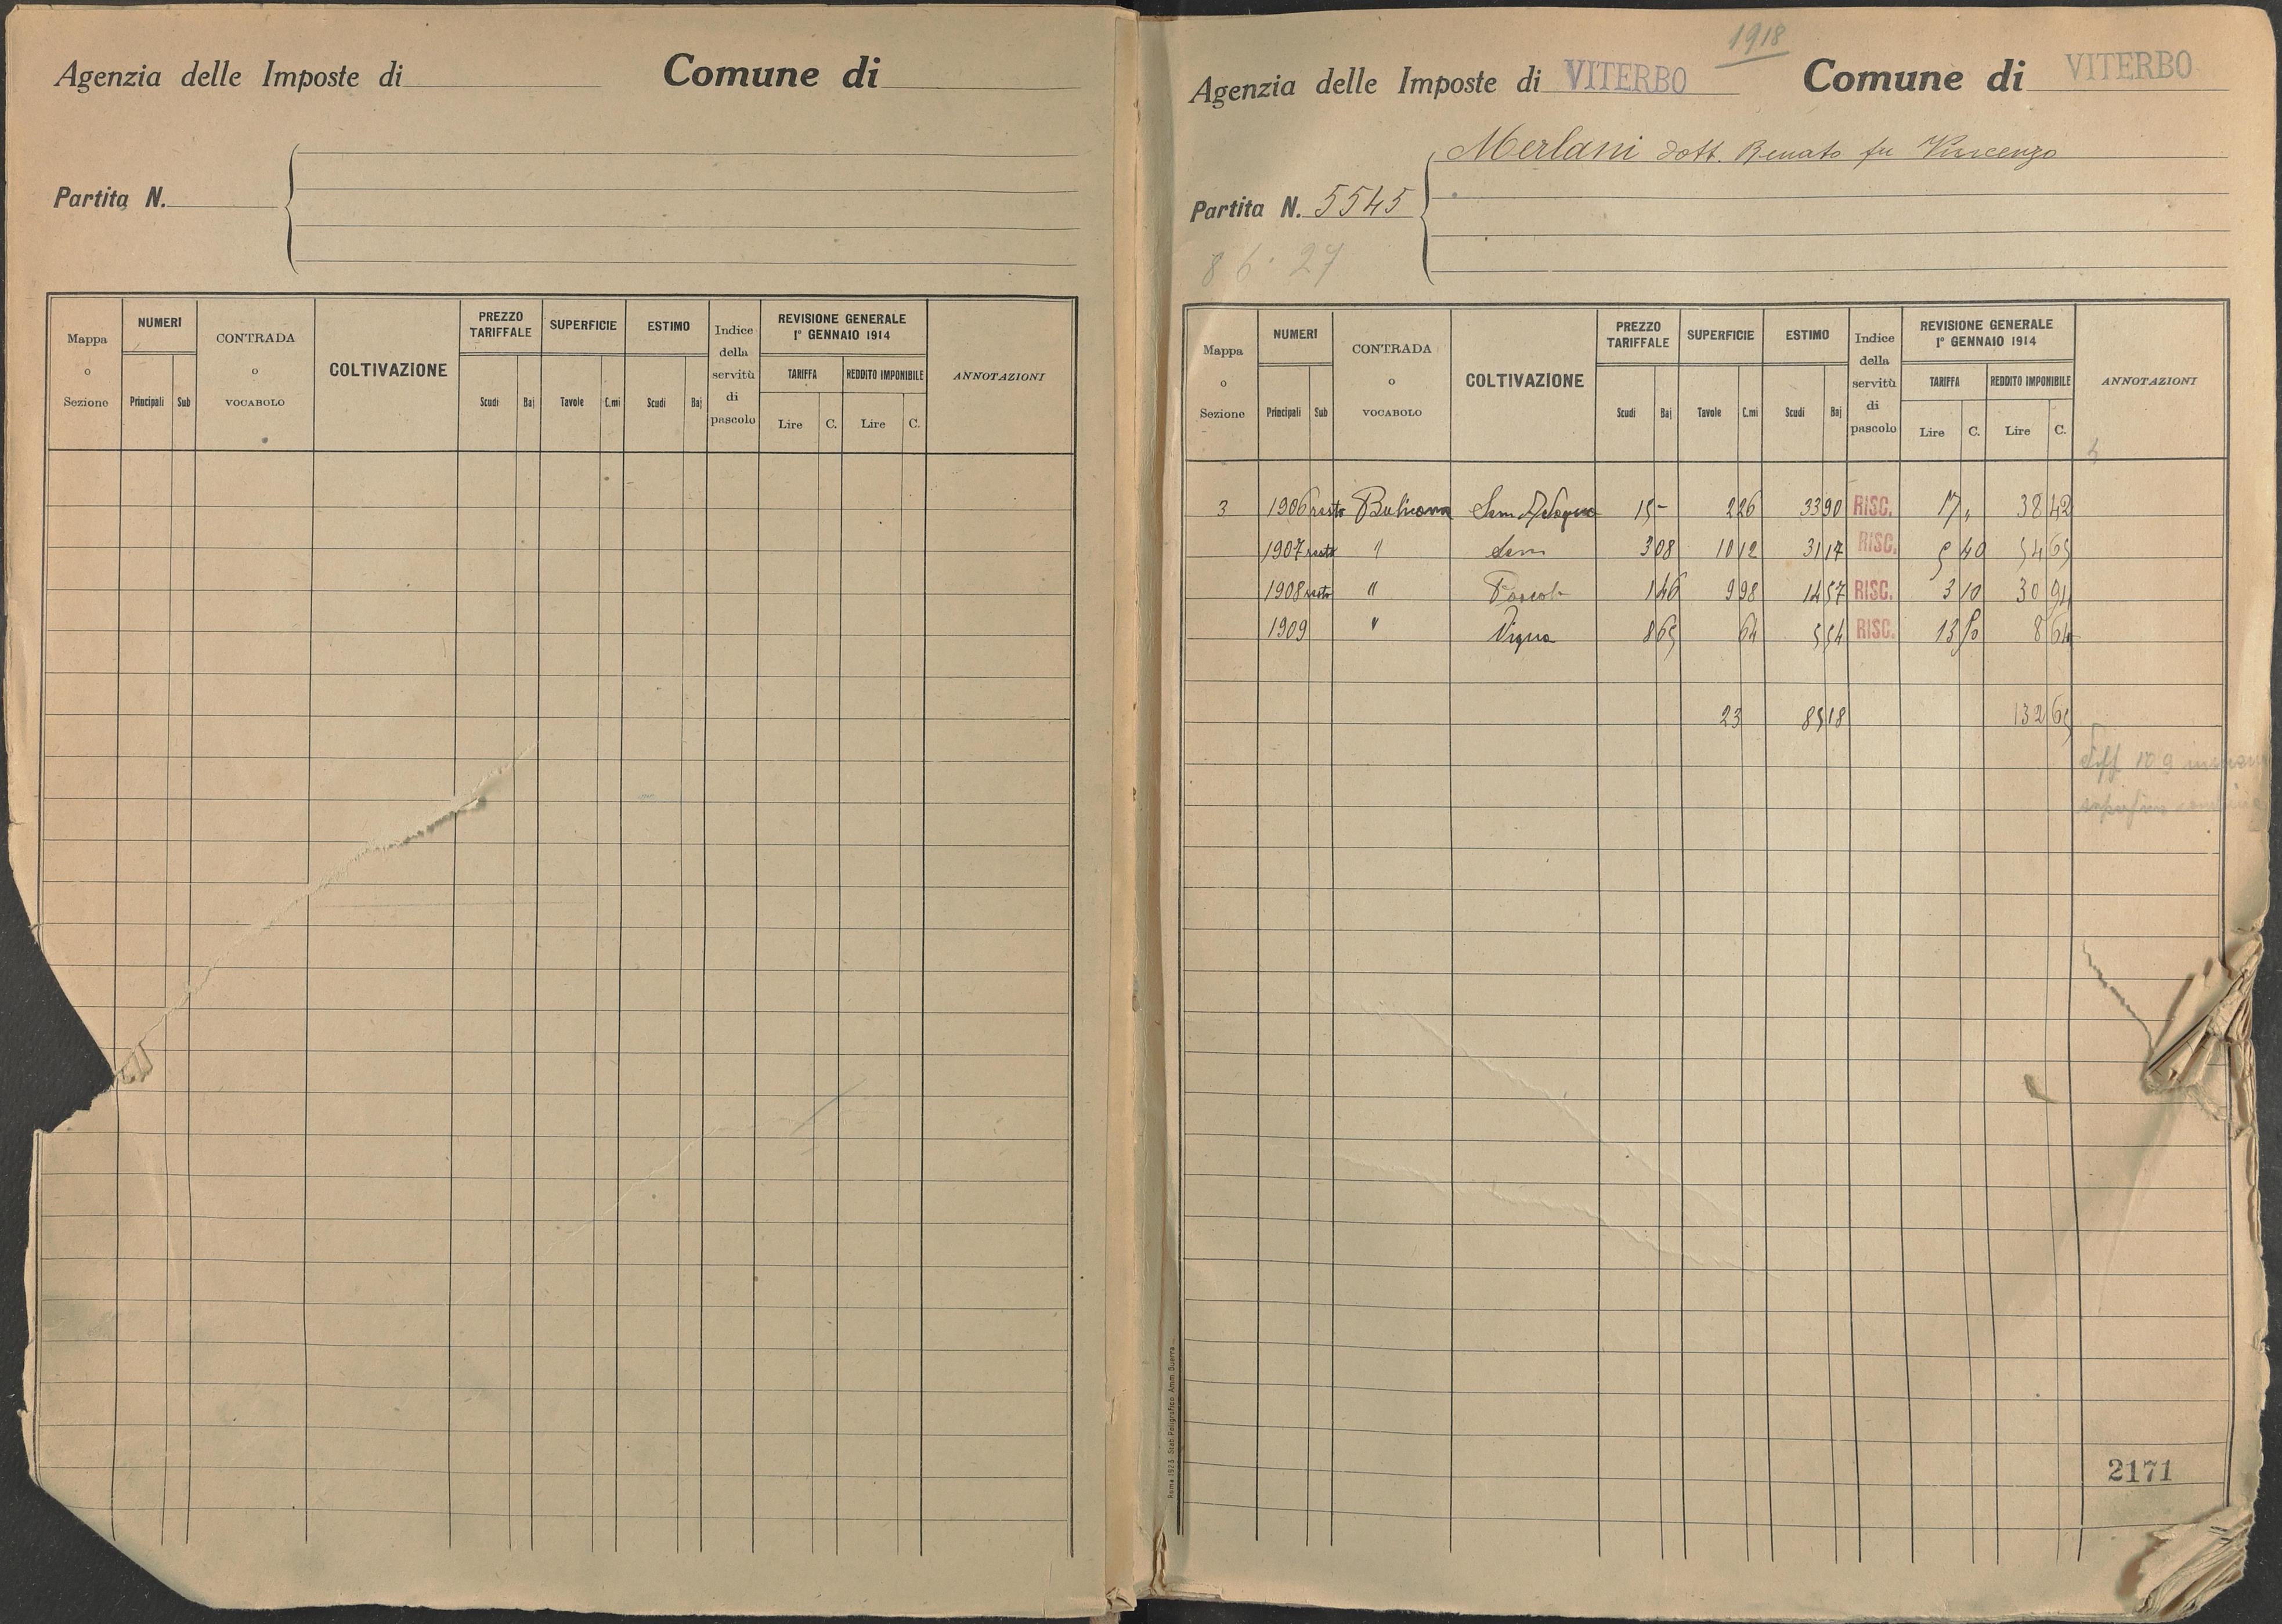 Agenzia delle Imposte di Comune di
Partita N.
Mappa o Sezione NUMERI Principali Sub CONTRADA o VOCABOLO COLTIVAZIONE PREZZO TARIFFALE Scudi Baj SUPERFICIE Tavole C.mi ESTIMO Scudi Baj Indice della servitù di pascolo REVISIONE GENERALE 1° GENNAIO 1914 TARIFFA Lire C. REDDITO IMPONIBILE Lire C. ANNOTAZIONI
1918
Agenzia delle Imposte di VITERBO Comune di VITERBO
Merlani dott. Renato fu Vincenzo
Partita N. 5545
8 6 27
Mappa o Sezione NUMERI Principali Sub CONTRADA o VOCABOLO COLTIVAZIONE PREZZO TARIFFALE Scudi Baj SUPERFICIE Tavole C.mi ESTIMO Scudi Baj Indice della servitù di pascolo REVISIONE GENERALE 1° GENNAIO 1914 TARIFFA Lire C. REDDITO IMPONIBILE Lire C. ANNOTAZIONI
3 1906 resto Bulicame Sem 15 - 2 26 33 90 RISC. 17 " 38 42
1907 resto " Sem 3 08 10 12 31 17 RISC. 5 40 54 65
1908 resto " Pascolo 1 46 9 98 14 57 RISC. 3 10 30 94
1909 " Vigna 8 65 64 5 54 RISC. 13 50 8 64
23 85 18 132 65
Diff 10 9
2171
Roma 1923 - Stab. Poligrafico Amm. Guerra